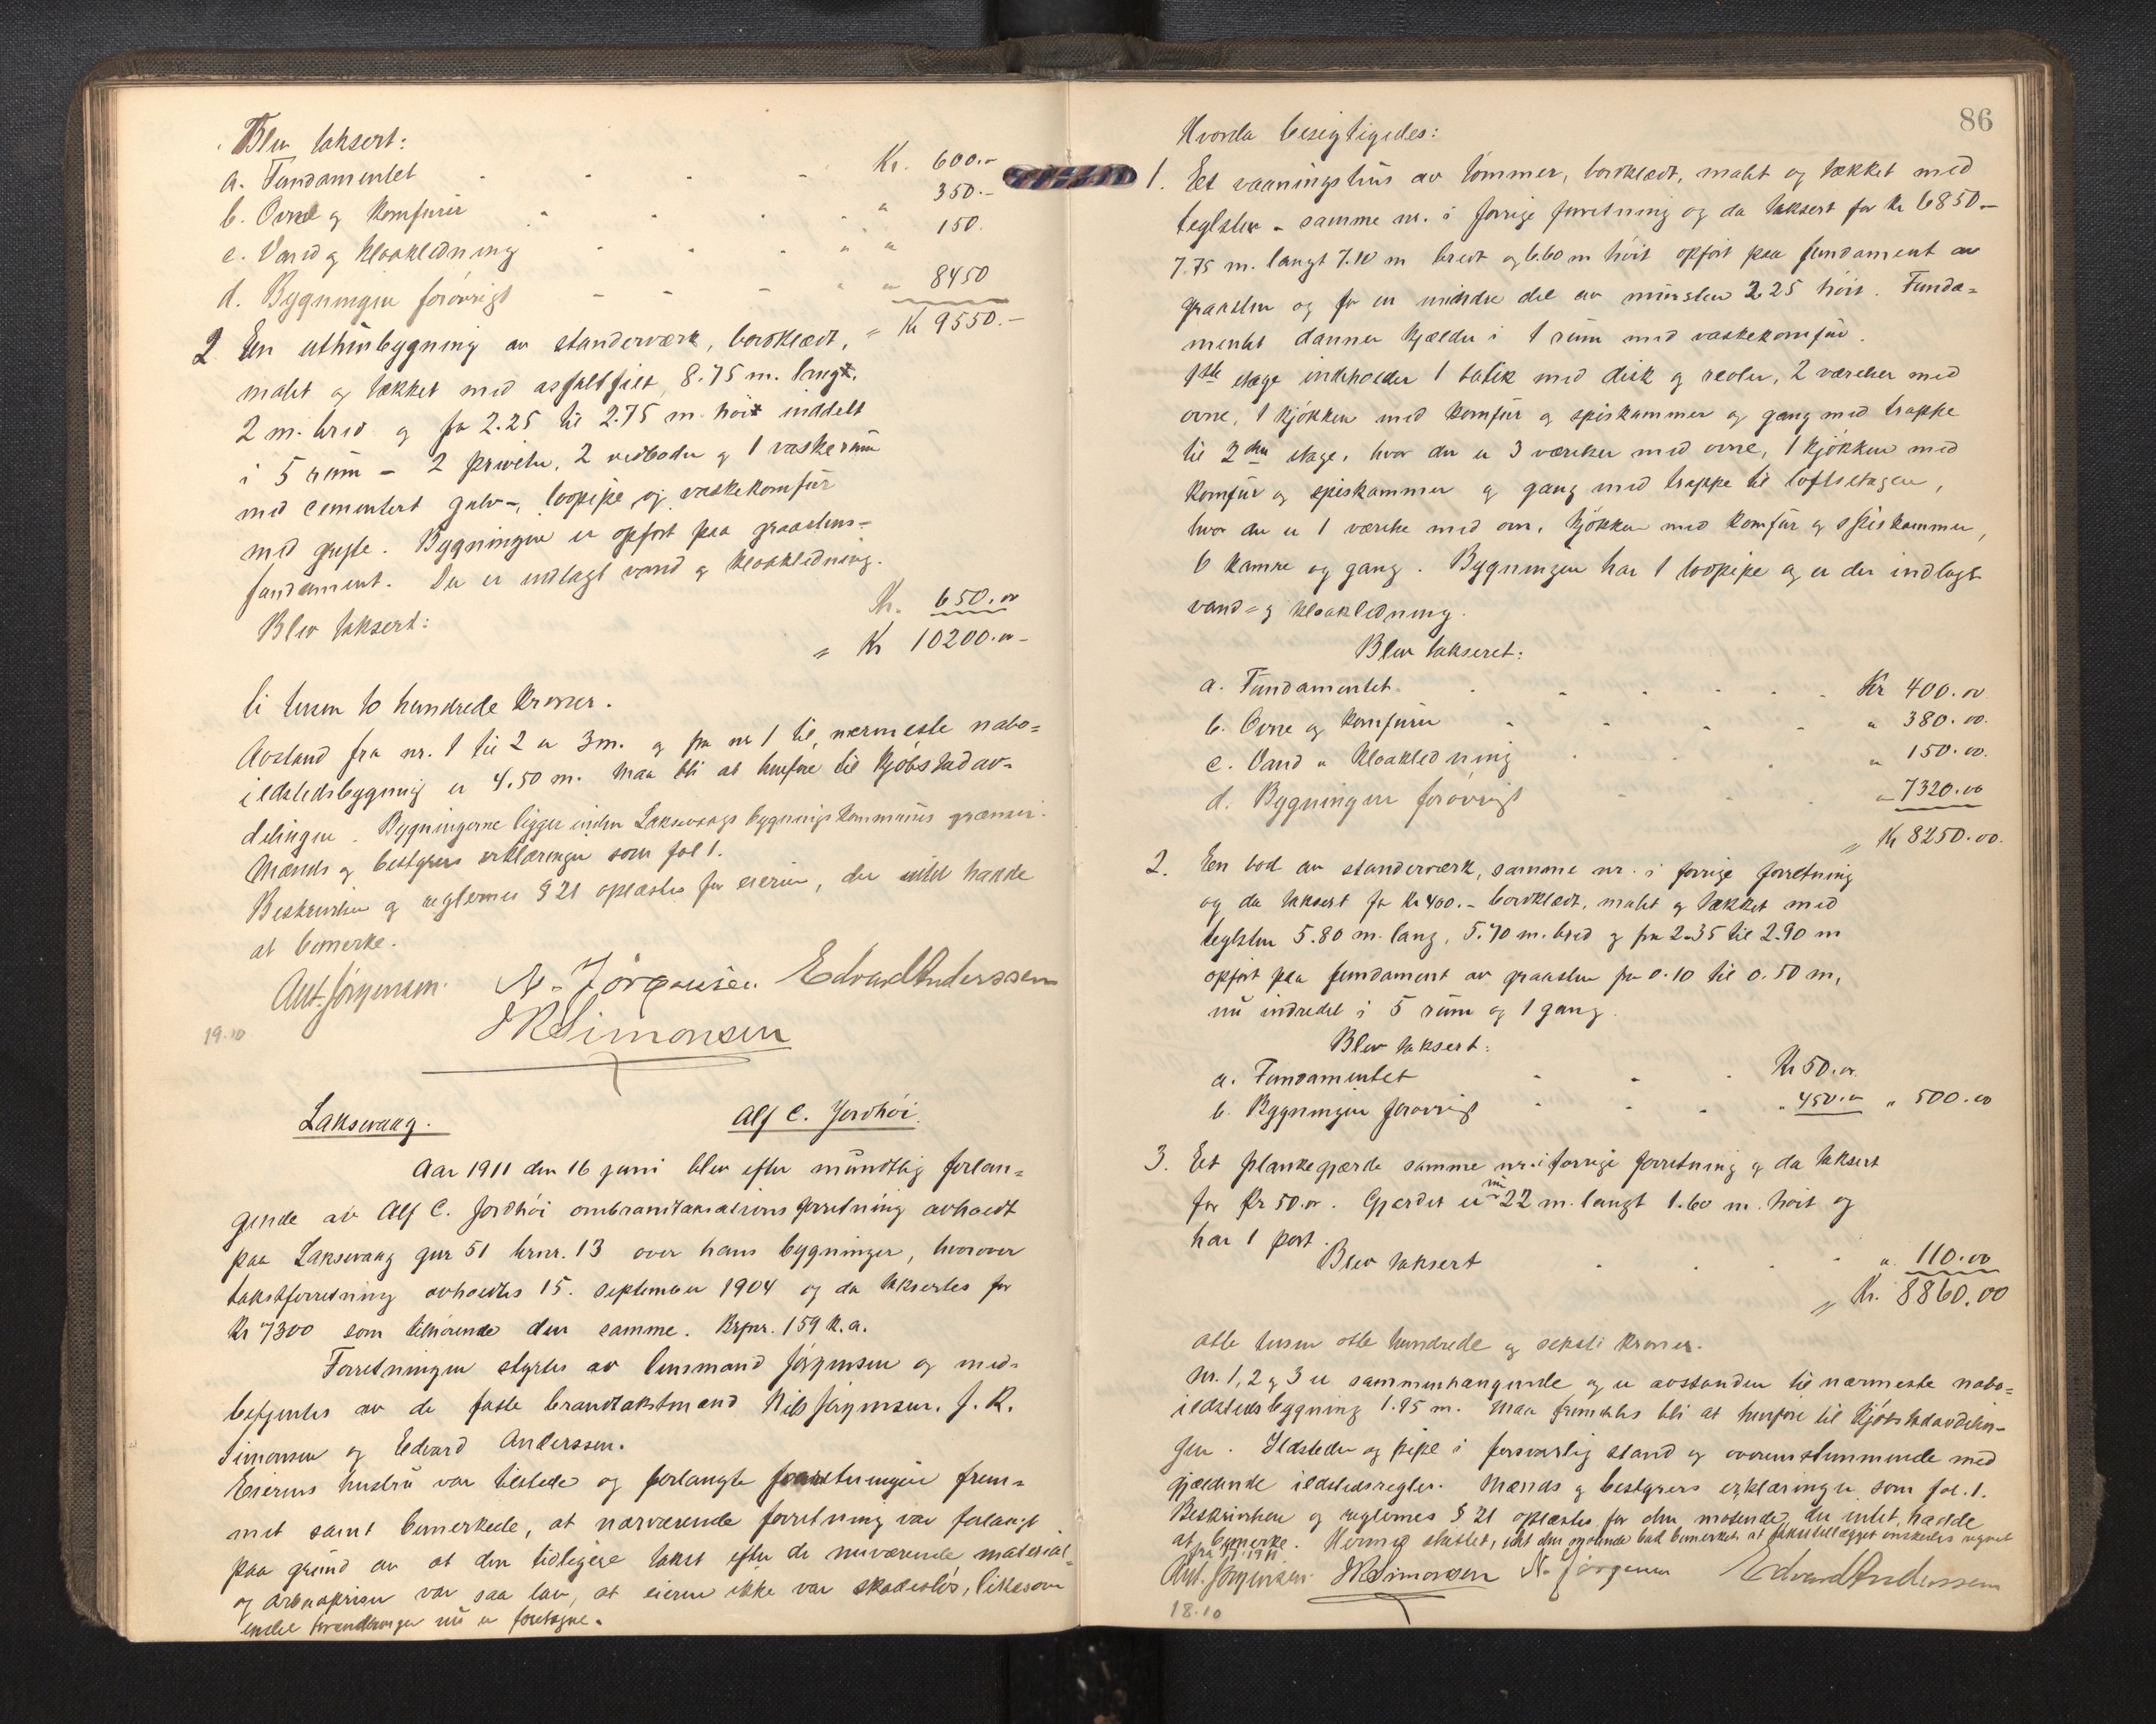 Blev taksert:
a. Fundamentet - - - - Kr. 600.-
b. Ovne og komfurer - - - " 350.-
c. Vand og kloakledning - - - " " 150.
d. Bygningen forøvrigt - - - " " 8450
= Kr 9550.-
2 En uthusbygning av standerværk, bordklædt,
malet og tækket med asfaltfilt 8.75 m. langt.
2 m. bred og fra 2.25 til 2.75 m. høit inddelt
i 5 rum - 2 priveter, 2 vedboder og 1 vaskerum
med cementert gulv -, loopipe og vaskekomfur
med gryte. Bygningen er opført paa graastens-
fundament. Der er indlagt vand og kloakledning.
Blev taksert: Kr. 650.00
= Kr 10200.00-
ti tusen to hundrede kroner.
Avstand fra nr. 1 til 2 er 3 m. og fra nr 1 til nærmeste nabo=
ildstedsbygning er 4.50 m. Maa bli at henføre til kjøbstadav-
delingen. Bygningerne ligger inden Laksevaags bygningskommunes grænser.
Mænds og bestyrers erklæringer som fol 1.
Beskrivelsen og reglernes § 21 oplæstes for eieren, der intet hadde
at bemerke.
Ant. Jørgensen. N. Jørgensen. Edvard Anderssen
JRSimonsen
19.10
Laksevaag. Alf C. Jordhøi.
Aar 1911 den 16 juni blev efter mundtlig forlan=
gende av Alf C. Jordhøi ombrandtaksationsforretning avholdt
paa Laksevaag gnr 51 brnr. 13 over hans bygninger, hvorover
takstforretning avholdtes 15. september 1904 og da taksertes for
Kr 7300 som tilhørende den samme. Brpnr. 159 k.a.
Forretningen styrtes av lensmand Jørgensen og med-
betjentes av de faste brandtakstmænd Nils Jørgensen, J. R.
Simonsen og Edvard Anderssen.
Eierens hustru var tilstede og forlangte forretningen frem=
met samt bemerkede, at nærværende forretning var forlangt
paa grund av at den tidligere takst efter de nuværende material=
og arbeidspriser var saa lav, at eieren ikke var skadesløs, likesom
endel forandringer nu er foretagne.
86
Hvorda besigtigedes:
1. Et vaaningshus av tømmer, bordklædt, malet og tækket med
teglsten - samme nr. i forrige forretning og da taksert for kr 6850-
7.75 m. langt 7.10 m bredt og 6.60 m høit opført paa fundament av
graasten og for en mindre del av mursten 2.25 høit. Funda=
mentet danner kjælder i 1 rum med vaskekomfur.
1ste etage indeholder 1 butik med disk og reoler, 2 værelser med
ovne, 1 kjøkken med komfur og spiskammer og gang med trappe
til 2den etage, hvor der er 3 værelser med ovne, 1 kjøkken med
komfur og spiskammer og gang med trappe til loftsetagen,
hvor der er 1 værelse med ovn, kjøkken med komfur og spiskammer,
6 kamre og gang. Bygningen har 1 loopipe og er der indlagt
vand= og kloakledning.
Blev takseret:
a. Fundamentet. - - - - - Kr 400.00
b. Ovne og komfurer - - - - " 380.00.
c. Vand " kloakledning - - - " 150.00.
d. Bygningen forøvrigt - - - " 7320.00
= Kr 8250.00.
2. En bod av standerværk, samme nr. i forrige forretning
og da taksert for kr 400.- bordklædt, malet og tækket med
teglsten 5.80 m. lang, 5.70 m. bred og fra 2.35 til 2.90 m
opført paa fundament av graasten fra 0.10 til 0.50 m,
nu indredet i 5 rum og 1 gang.
Blev taksert:
a. Fundamentet - - - Kr 50.00.
b. Bygningen forøvrigt - - - " 450.00 " 500.00
3. Et plankegjærde samme nr. i forrige forretning og da taksert
for Kr 50.00. Gjærdet er nu 22 m. langt 1.60 m. høit og
har 1 port.
Blev taksert - - - - " 110.00
= Kr. 8860.00
otte tusen otte hundrede og seksti kroner.
Nr. 1, 2 og 3 er sammenhængende og er avstanden til nærmeste nabo=
ildstedsbygning 1.95 m. Maa fremdeles bli at henføre til kjøbstadavdelin-
gen. Ildsteder og pipe i forsvarlig stand og overensstemmende med
gjældende ildstedsregler. Mænds og bestyrers erklæringer som fol. 1.
Beskrivelsen og reglernes § 21 oplæstes for den møtende, der intet hadde
at bemerke. Hermed sluttet, idet den møtende bad bemerket at taksttillægget ønskedes regnet
fra 1911
Ant. Jørgensen. JRSimonsen N. Jørgensen Edvard Anderssen
18.10